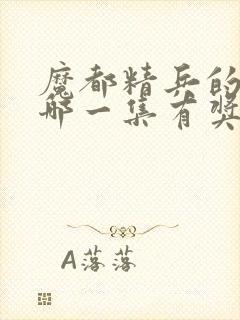 魔都精兵的
哪一集有奖
A落落